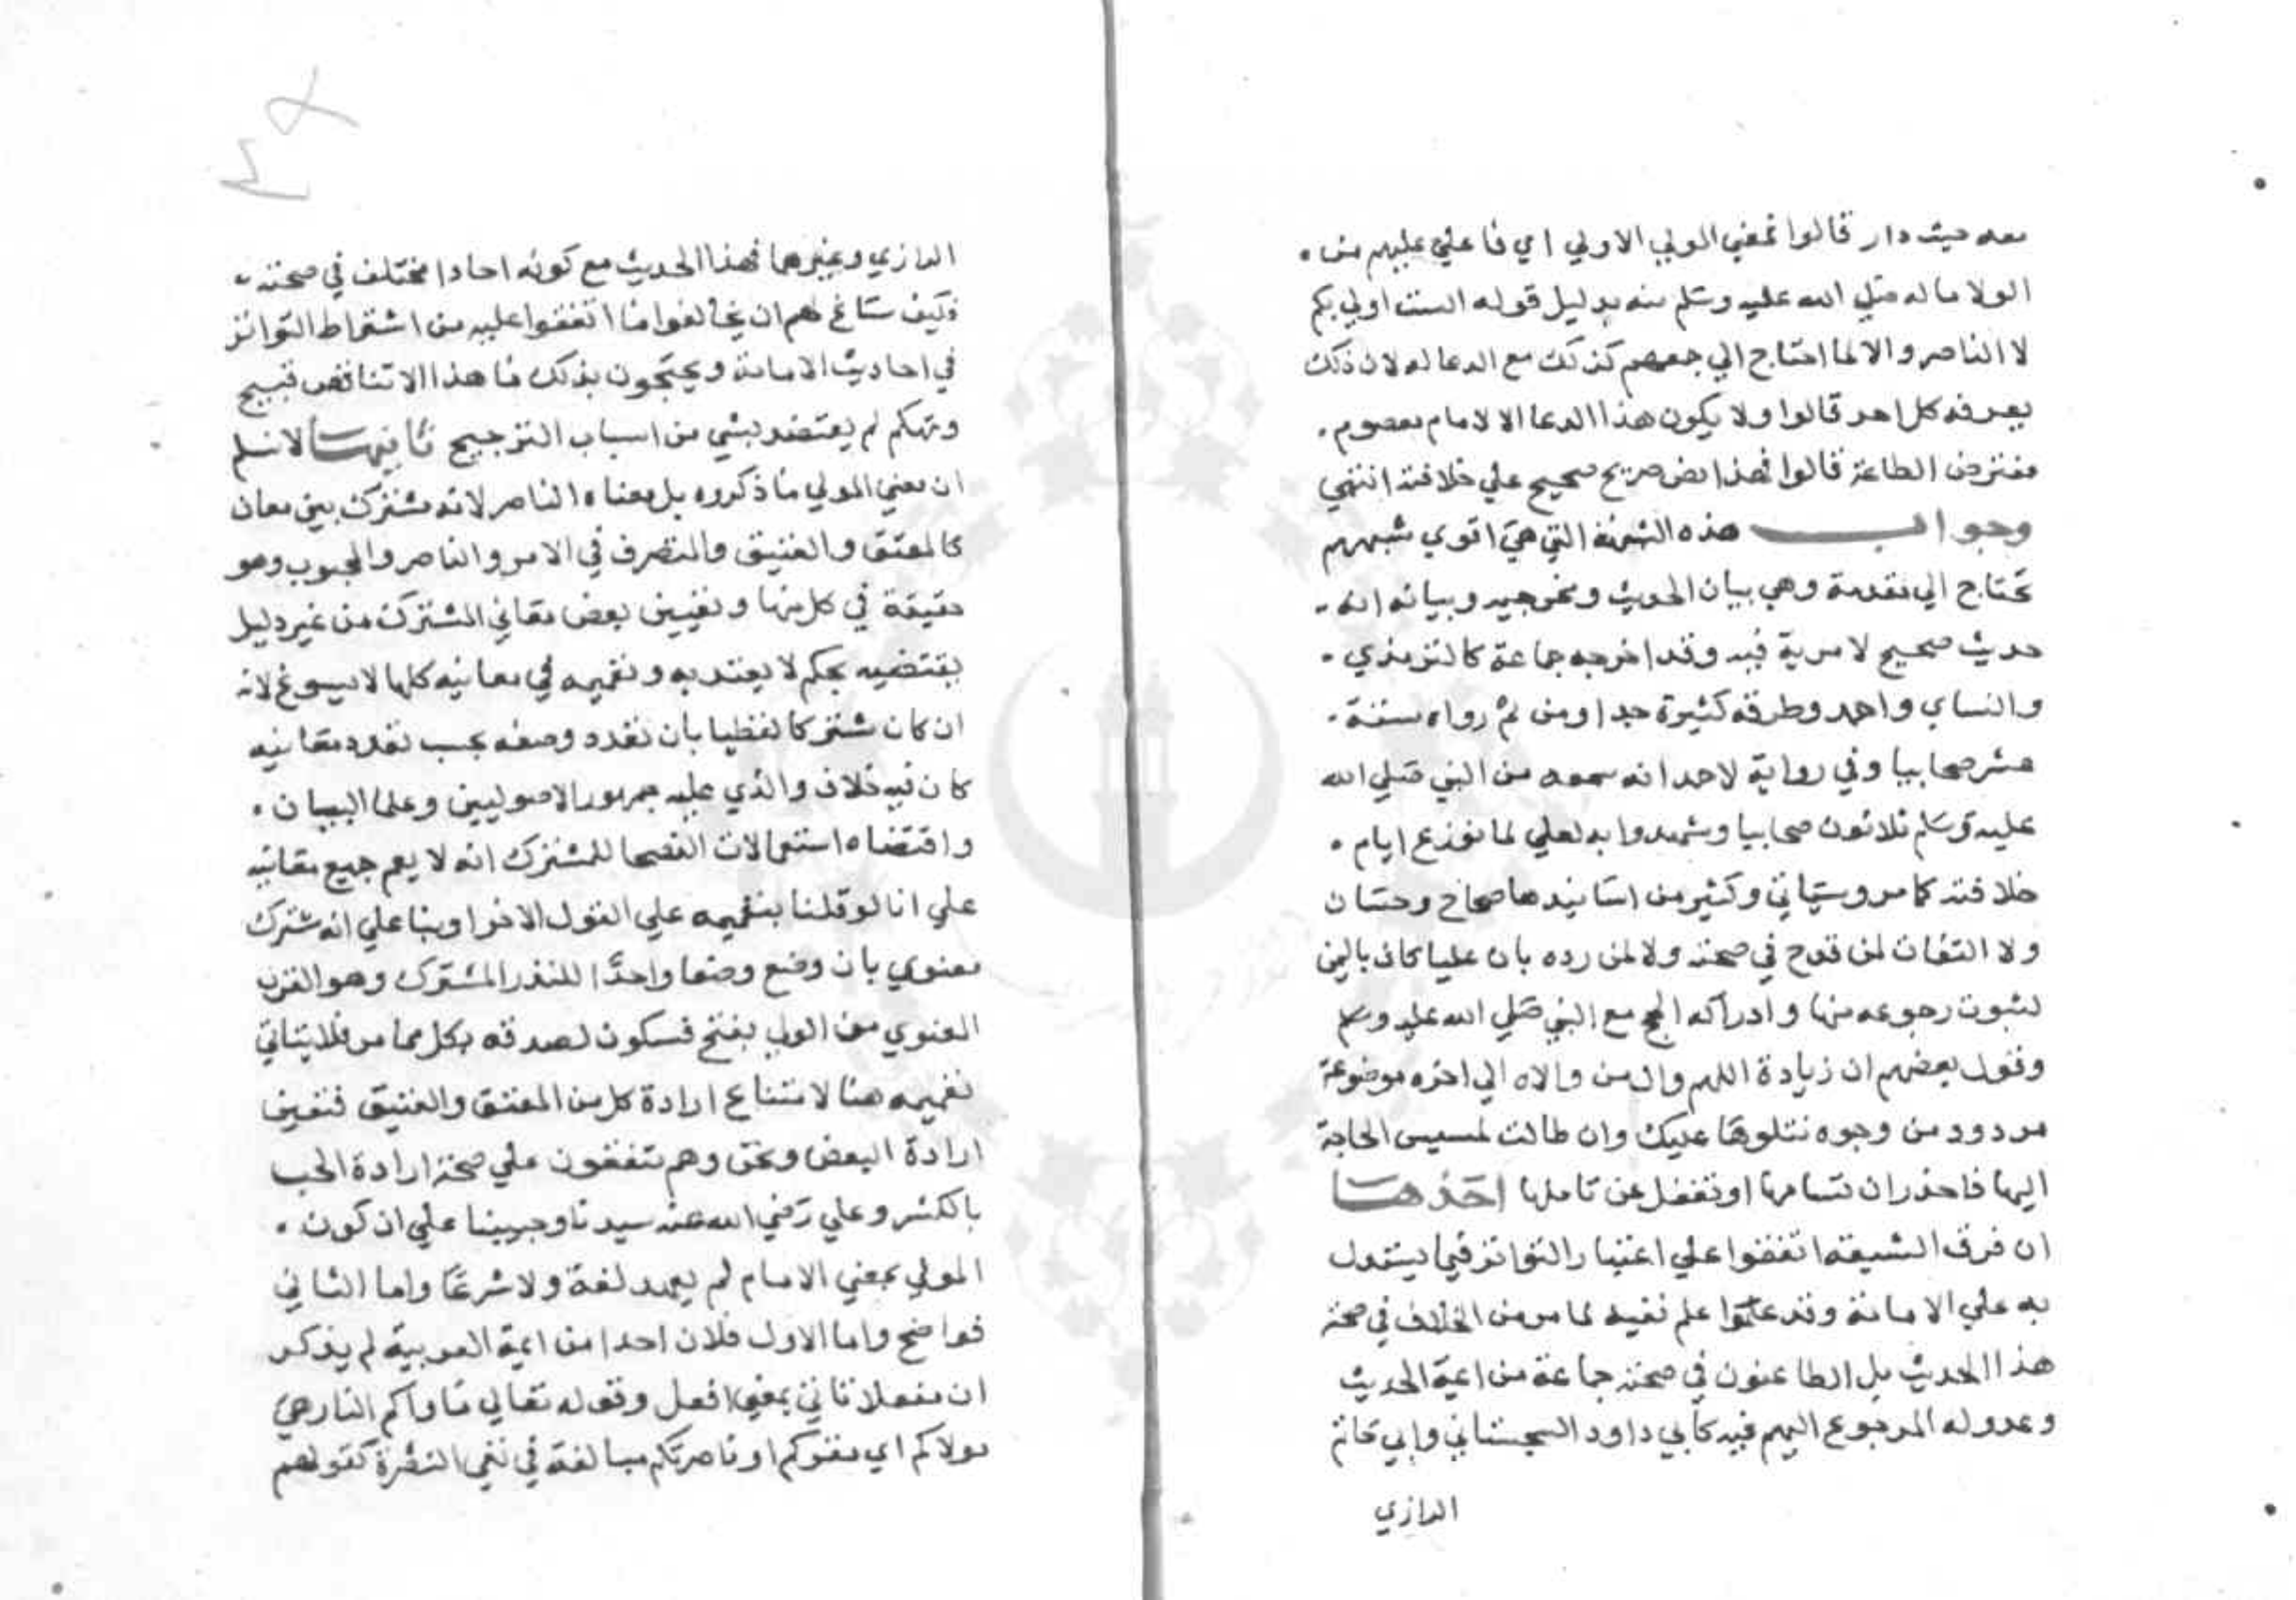 معه حيث دار قالوا فمعني المولي الاولي اي فلعلي عليهم من
الولا ماله صلي الله عليه وسلم منه بدليل قوله الست اولي بكم
لا الناصر والا لما احتاج الي جمعهم كذلك مع الدعا له لان ذلك
يعرفه كل احد قالوا ولا يكون هذا الدعا الا لامام معصوم
مفترض الطاعة قالوا فهذا نص صريح صحيح علي خلافته انتهي
وجواب هذه الشبهة التي هي اقوي شبههم
تحتاج الي مقدمة وهي بيان الحديث ومخرجيه وبيانه انه
حديث صحيح لا مرية فيه وقد اخرجه جماعة كالترمذي
والنساي واحمد وطرقه كثيرة جدا ومن ثم رواه ستة
عشر صحابيا وفي رواية لاحد انه سمعه من النبي صلي الله
عليه وسلم ثلاثون صحابيا وشهدوا به لعلي لما نوزع ايام
خلافته كما مر وسياتي وكثير من اسانيدها صحاح وحسان
ولا التفات لمن قدح في صحته ولا لمن رده بان عليا كان باليمن
لثبوت رجوعه منها وادراكه الحج مع النبي صلي الله عليه وسلم
وقول بعضهم ان زيادة اللهم وال من والاه الي اخره موضوعة
مردود من وجوه نتلوها عليك وان طالت لمسيس الحاجة
اليها فاحذر ان تسامها او تغفل عن تاملها احدها
ان فرق الشيعة اتفقوا علي اعتبار التواتر فيما يستدل
به علي الامامة وقد علموا علم نفيه لما مر من الخلاف في صحة
هذا الحديث بل الطاعنون في صحته جماعة من ايمة الحديث
وعدوله المرجوع اليهم فيه كابي داود السجستاني وابي حاتم
الرازي
الرازي وغيرهما فهذا الحديث مع كونه احادا مختلف في صحته
فكيف ساغ لهم ان يخالفوا ما اتفقوا عليه من اشتراط التواتر
في احاديث الامامة ويحتجون بذلك ما هذا الا تناقض قبيح
وتحكم لم يعتضد بشي من اسباب الترجيح ثانيها لا نسلم
ان معني المولي ما ذكروه بل معناه الناصر لانه مشترك بين معان
كالمعتق والعتيق والمتصرف في الامر والناصر والمحبوب وهو
حقيقة في كل منها وتعيين بعض معاني المشترك من غير دليل
يقتضيه تحكم لا يعتد به وتعميمه في معانيه كلها لا يسوغ لانه
ان كان مشتركا لفظيا بان تعدد وضعه بحسب تعدد معانيه
كان فيه خلاف والذي عليه جمهور الاصوليين وعلما البيان
واقتضاه استعمالات الفصحا للمشترك انه لا يعم جميع معانيه
علي انا لو قلنا بتعميمه علي القول الاخر او بنا علي انه مشترك
معنوي بان وضع وضعا واحدا للقدر المشترك وهو القرب
المعنوي من الولي بفتح فسكون لصدقه بكل مما مر فلا يتاتي
تعميمه هنا لامتناع ارادة كل من المعتق والعتيق فتعين
ارادة البعض ونحن وهم متفقون علي صحة ارادة الحب
بالكسر وعلي رضي الله عنه سيدنا وحبيبنا علي ان كون
المولي بمعني الامام لم يعهد لغة ولا شرعا واما الثاني
فواضح واما الاول فلان احدا من ايمة العربية لم يذكر
ان مفعلا تاتي بمعني افعل وقوله تعالي ماواكم النار هي
مولاكم اي مقركم او ناصرتكم مبالغة في نفي النصرة كقولهم